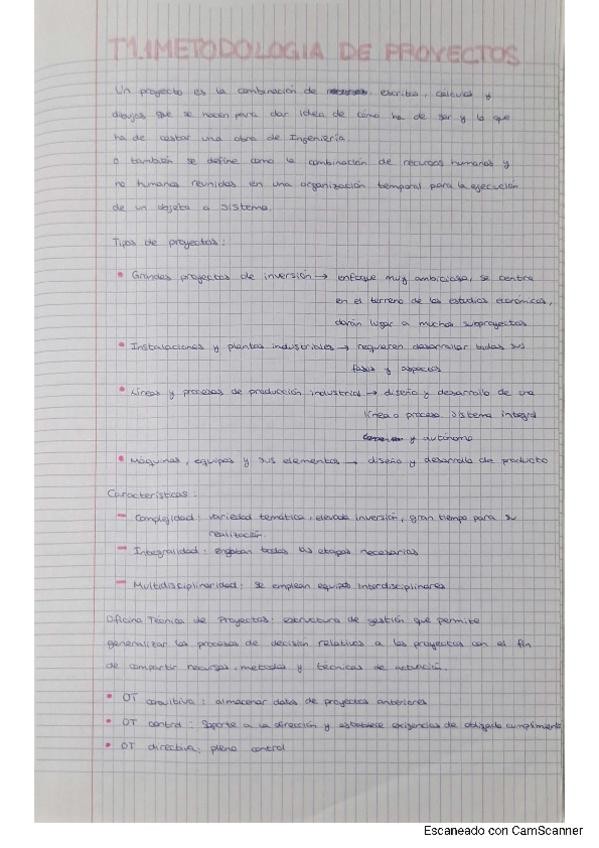 T1.1 METODOLOGIA DE PROYECTOS
Un proyecto es la combinación de escritos, calculos y
dibujos que se hacen para dar idea de cómo ha de ser y lo que
ha de costar una obra de Ingeniería.
o también se define como la combinación de recursos humanos y
no humanos reunidos en una organización temporal para la ejecución
de un objeto o sistema.
Tipos de proyectos:
• Grandes proyectos de inversión → enfoque muy ambicioso, se centra
en el terreno de los estudios económicos,
darán lugar a muchos subproyectos
• Instalaciones y plantas industriales → requieren desarrollar todas sus
fases y aspectos
• Líneas y procesos de producción industrial → diseño y desarrollo de una
línea o proceso. Sistema integral
y autónomo
• Máquinas, equipos y sus elementos → diseño y desarrollo de producto
Características:
- Complejidad: variedad temática, elevada inversión, gran tiempo para su
realización.
- Integralidad: engloban todas las etapas necesarias
- Multidisciplinaridad: se emplean equipos interdisciplinares
Oficina Técnica de Proyectos: estructura de gestión que permite
generalizar los procesos de decisión relativos a los proyectos con el fin
de compartir recursos, metodos y técnicas de actuación.
• OT consultiva: almacenar datos de proyectos anteriores
• OT control: Soporte a la dirección y establece exigencias de obligado cumplimiento
• OT directiva: pleno control
Escaneado con CamScanner